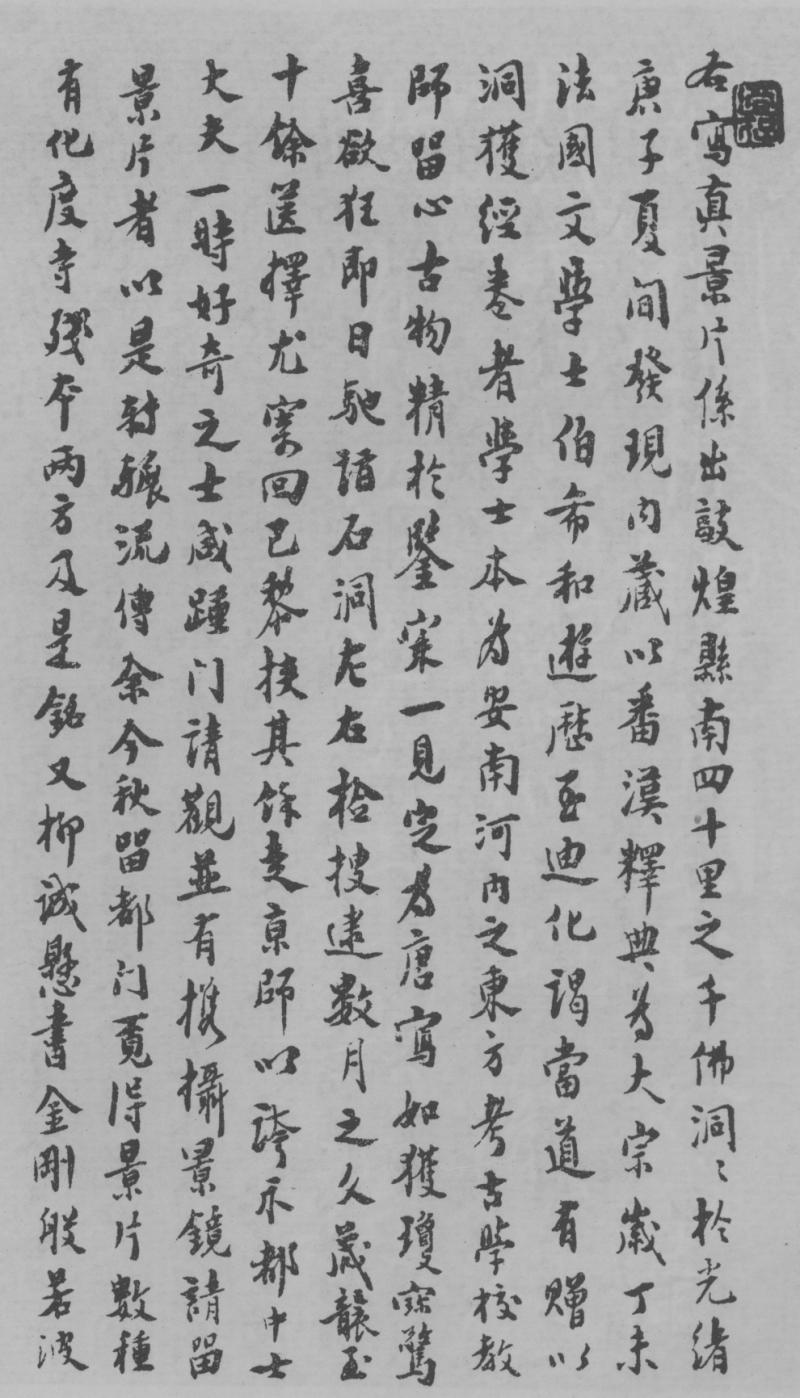 右寫真景片係出敦煌縣南四十里之千佛洞〻於光緒
庚子夏間發現內藏以番漢釋典為大宗歲丁未
法國文學士伯希和遊歷至迪化謁當道有贈以
洞獲經卷者學士本為安南河內之東方考古學校教
師留心古物精於鑒案一見定為唐寫如獲瓊寶驚
喜欲狂即日馳詣石洞左右拾搜逮數月之久歲龍至
十餘篋擇尤寄回巴黎挾其餘走京師以誇示都中士
大夫一時好奇之士咸踵门請觀並有攜攝景鏡請留
景片者以是輾流傳余今秋留都门覓得景片數種
有化度寺殘本兩方及是銘又柳誠懸書金剛般若波